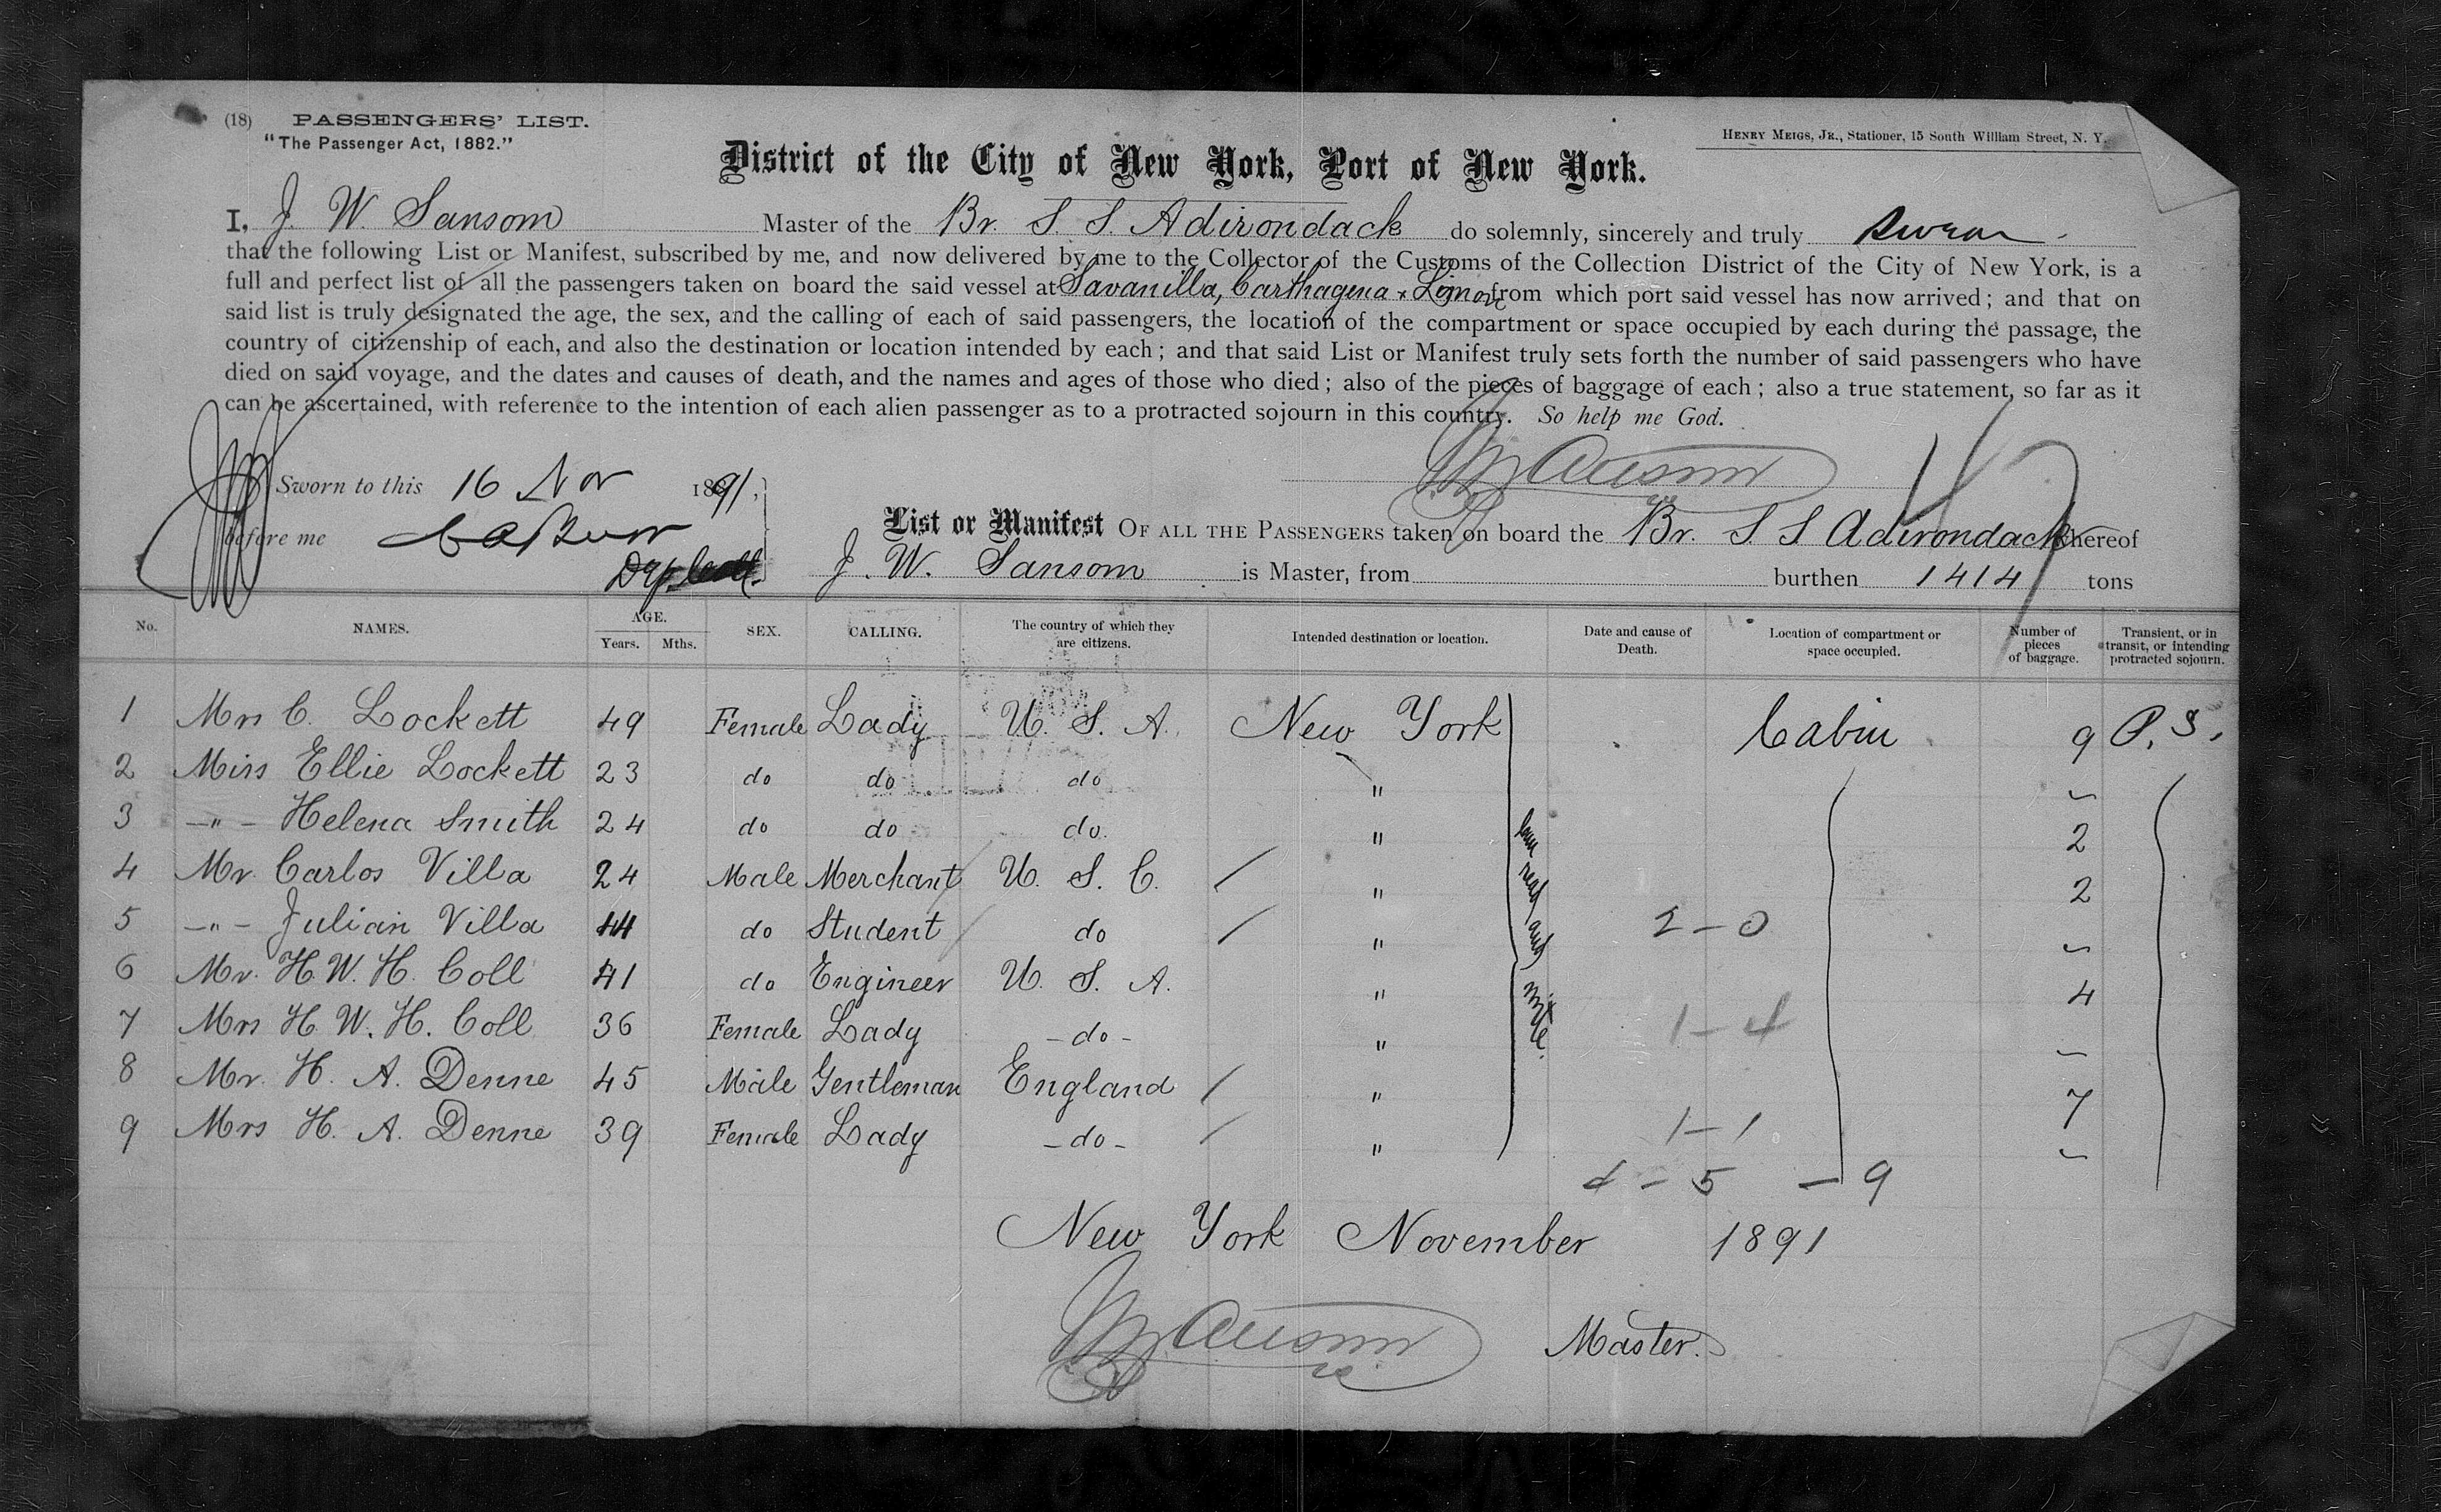 (18) PASSENGERS' LIST.
"The Passenger Act, 1882."
HENRY MEIGS, JR., Stationer, 15 South William Street, N. Y.
District of the City of New York, Port of New York.
I, J. W. Sansom Master of the Br. S. S. Adirondack do solemnly, sincerely and truly swear
that the following List or Manifest, subscribed by me, and now delivered by me to the Collector of the Customs of the Collection District of the City of New York, is a
full and perfect list of all the passengers taken on board the said vessel at Savanilla, Carthagena & Limon from which port said vessel has now arrived; and that on
said list is truly designated the age, the sex, and the calling of each of said passengers, the location of the compartment or space occupied by each during the passage, the
country of citizenship of each, and also the destination or location intended by each; and that said List or Manifest truly sets forth the number of said passengers who have
died on said voyage, and the dates and causes of death, and the names and ages of those who died; also of the pieces of baggage of each; also a true statement, so far as it
can be ascertained, with reference to the intention of each alien passenger as to a protracted sojourn in this country. So help me God.
Sworn to this 16 Nov 1891,
before me
List or Manifest OF ALL THE PASSENGERS taken on board the Br. S. S Adirondack whereof
J. W. Sansom is Master, from burthen 1414 tons
No. NAMES. AGE. Years. Mths. SEX. CALLING. The country of which they are citizens. Intended destination or location. Date and cause of Death. Location of compartment or space occupied. Number of pieces of baggage. Transient, or in transit, or intending protracted sojourn.
1 Mrs C. Lockett 49 Female Lady U. S. A. New York Cabin 9 P. S.
2 Miss Ellie Lockett 23 do do do "
3 -"- Helena Smith 24 do do do. " 2
4 Mr. Carlos Villa 24 Male Merchant U. S. C. / " 2
5 -"- Julian Villa do Student do / " 2-0
6 Mr. H. W. H. Coll 41 do Engineer U. S. A. " 4
7 Mrs H. W. H. Coll 36 Female Lady -do- " 1-4
8 Mr. H. A. Denne 45 Male Gentleman England / " 7
9 Mrs H. A. Denne 39 Female Lady -do- / " 1-1
can read and write.
4-5 -9
New York November 1891
Master.